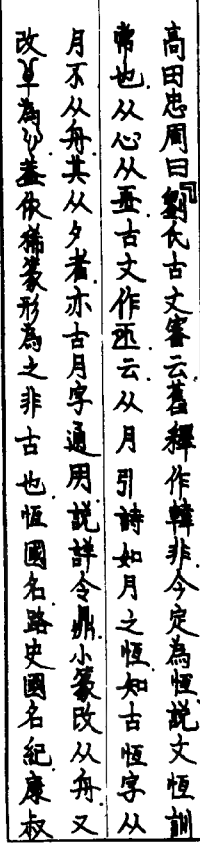 高田忠周曰『劉氏古文審云舊釋作韓非今定為恆說文恆訓
常也从心从亙古文作𠄨云从月引詩如月之恆知古恆字从
月不从舟其从夕者亦古月字通用說詳令鼎小篆改从舟又
改為蓋依稀篆形為之非古也恆國名路史國名紀康叔